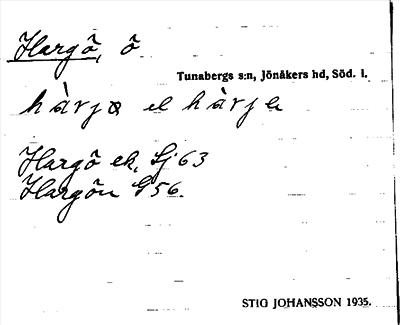 Hargö, ö.
Tunabergs s:n, Jönåkers hd, Söd. l.
hàrjɷ el hàrjə
Hargö ek, Sj 63
Hargön G 56.
STIG JOHANSSON 1935.